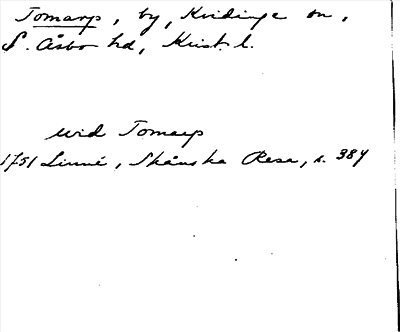 Tomarp, by, Kvidinge sn,
S. Åsbo hd, Krist. l.
wid Tomarp
1751 Linné, Skånska Resa, s. 389